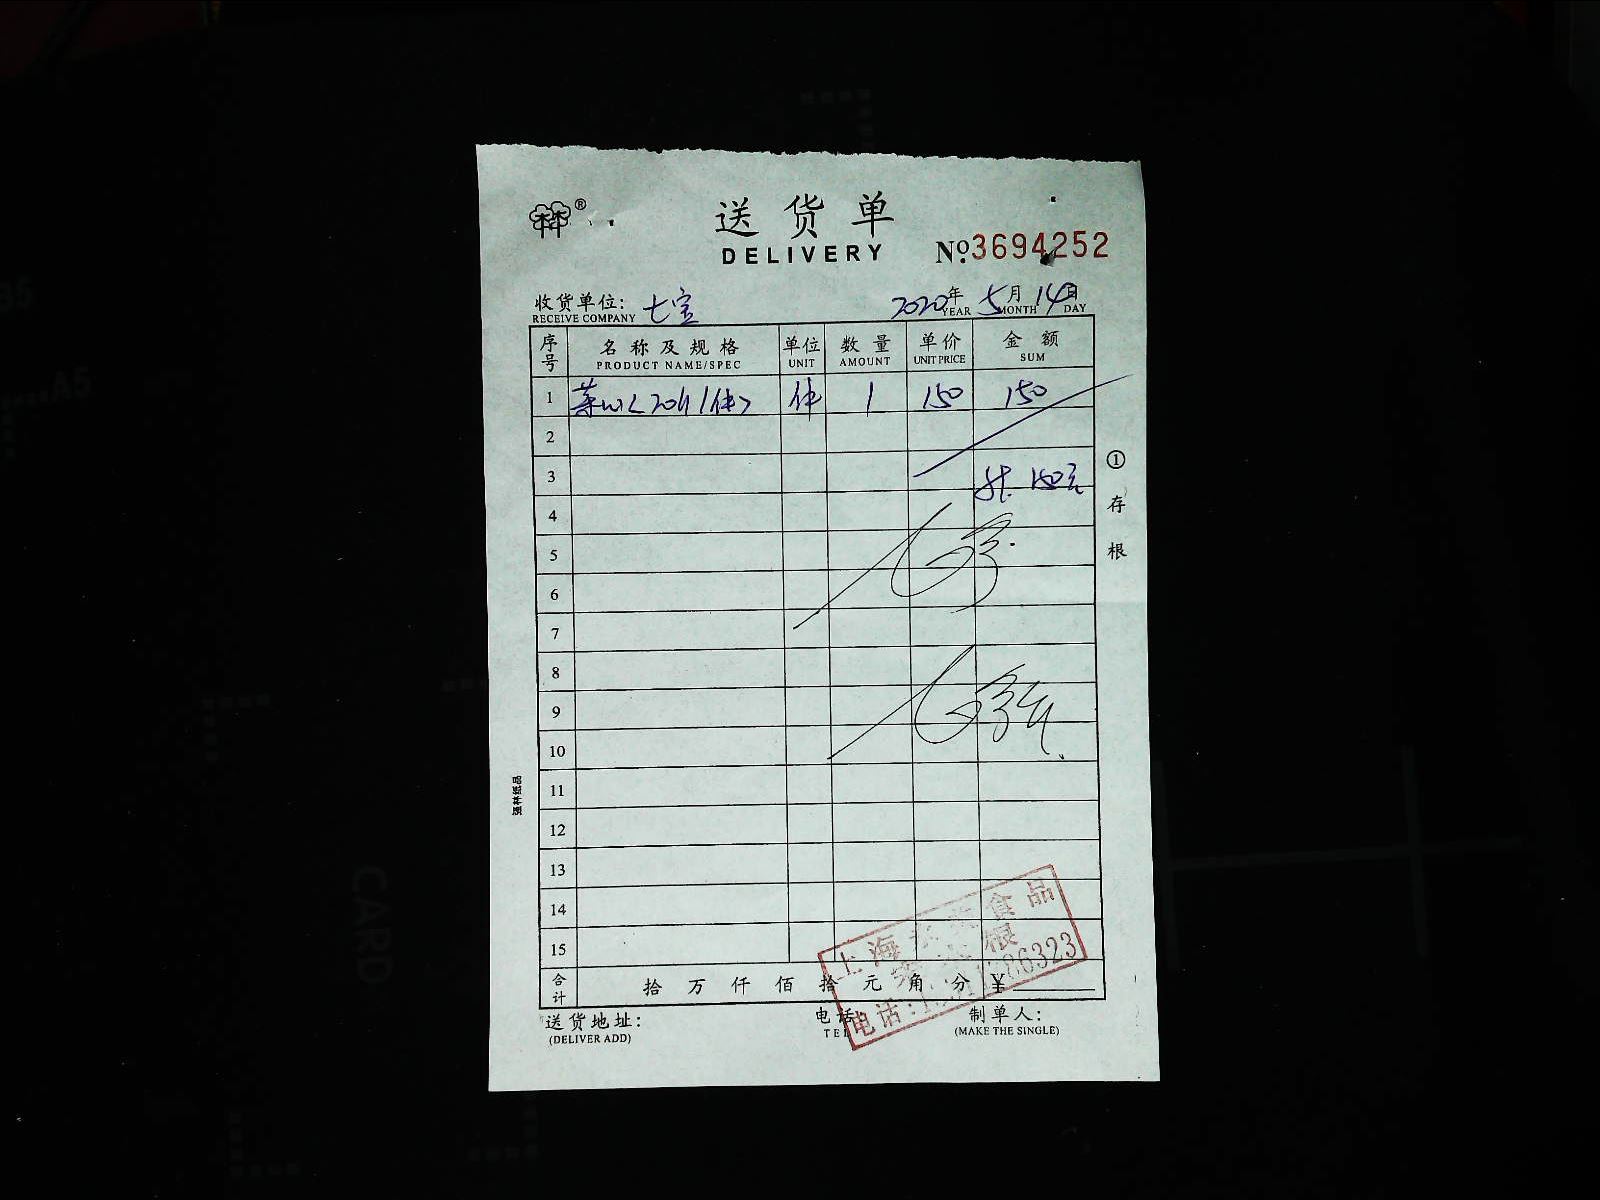 ®
送货单
DELIVERY
No.3694252
收货单位: 七宝
RECEIVE COMPANY
2020年 5月 14日
YEAR MONTH DAY
序号 名称及规格 单位 数量 单价 金额
PRODUCT NAME/SPEC UNIT AMOUNT UNIT PRICE SUM
1 菜心 件 1 150 150
2
3 共 150元
4
5
6
7
8
9
10
11
12
13
14
15
合计 拾 万 仟 佰 拾 元 角 分 ¥
①存根
强林纸品
上海 食品
根
电话: 86323
送货地址: 电话: 制单人:
(DELIVER ADD) TEL (MAKE THE SINGLE)
B5
A5
CARD